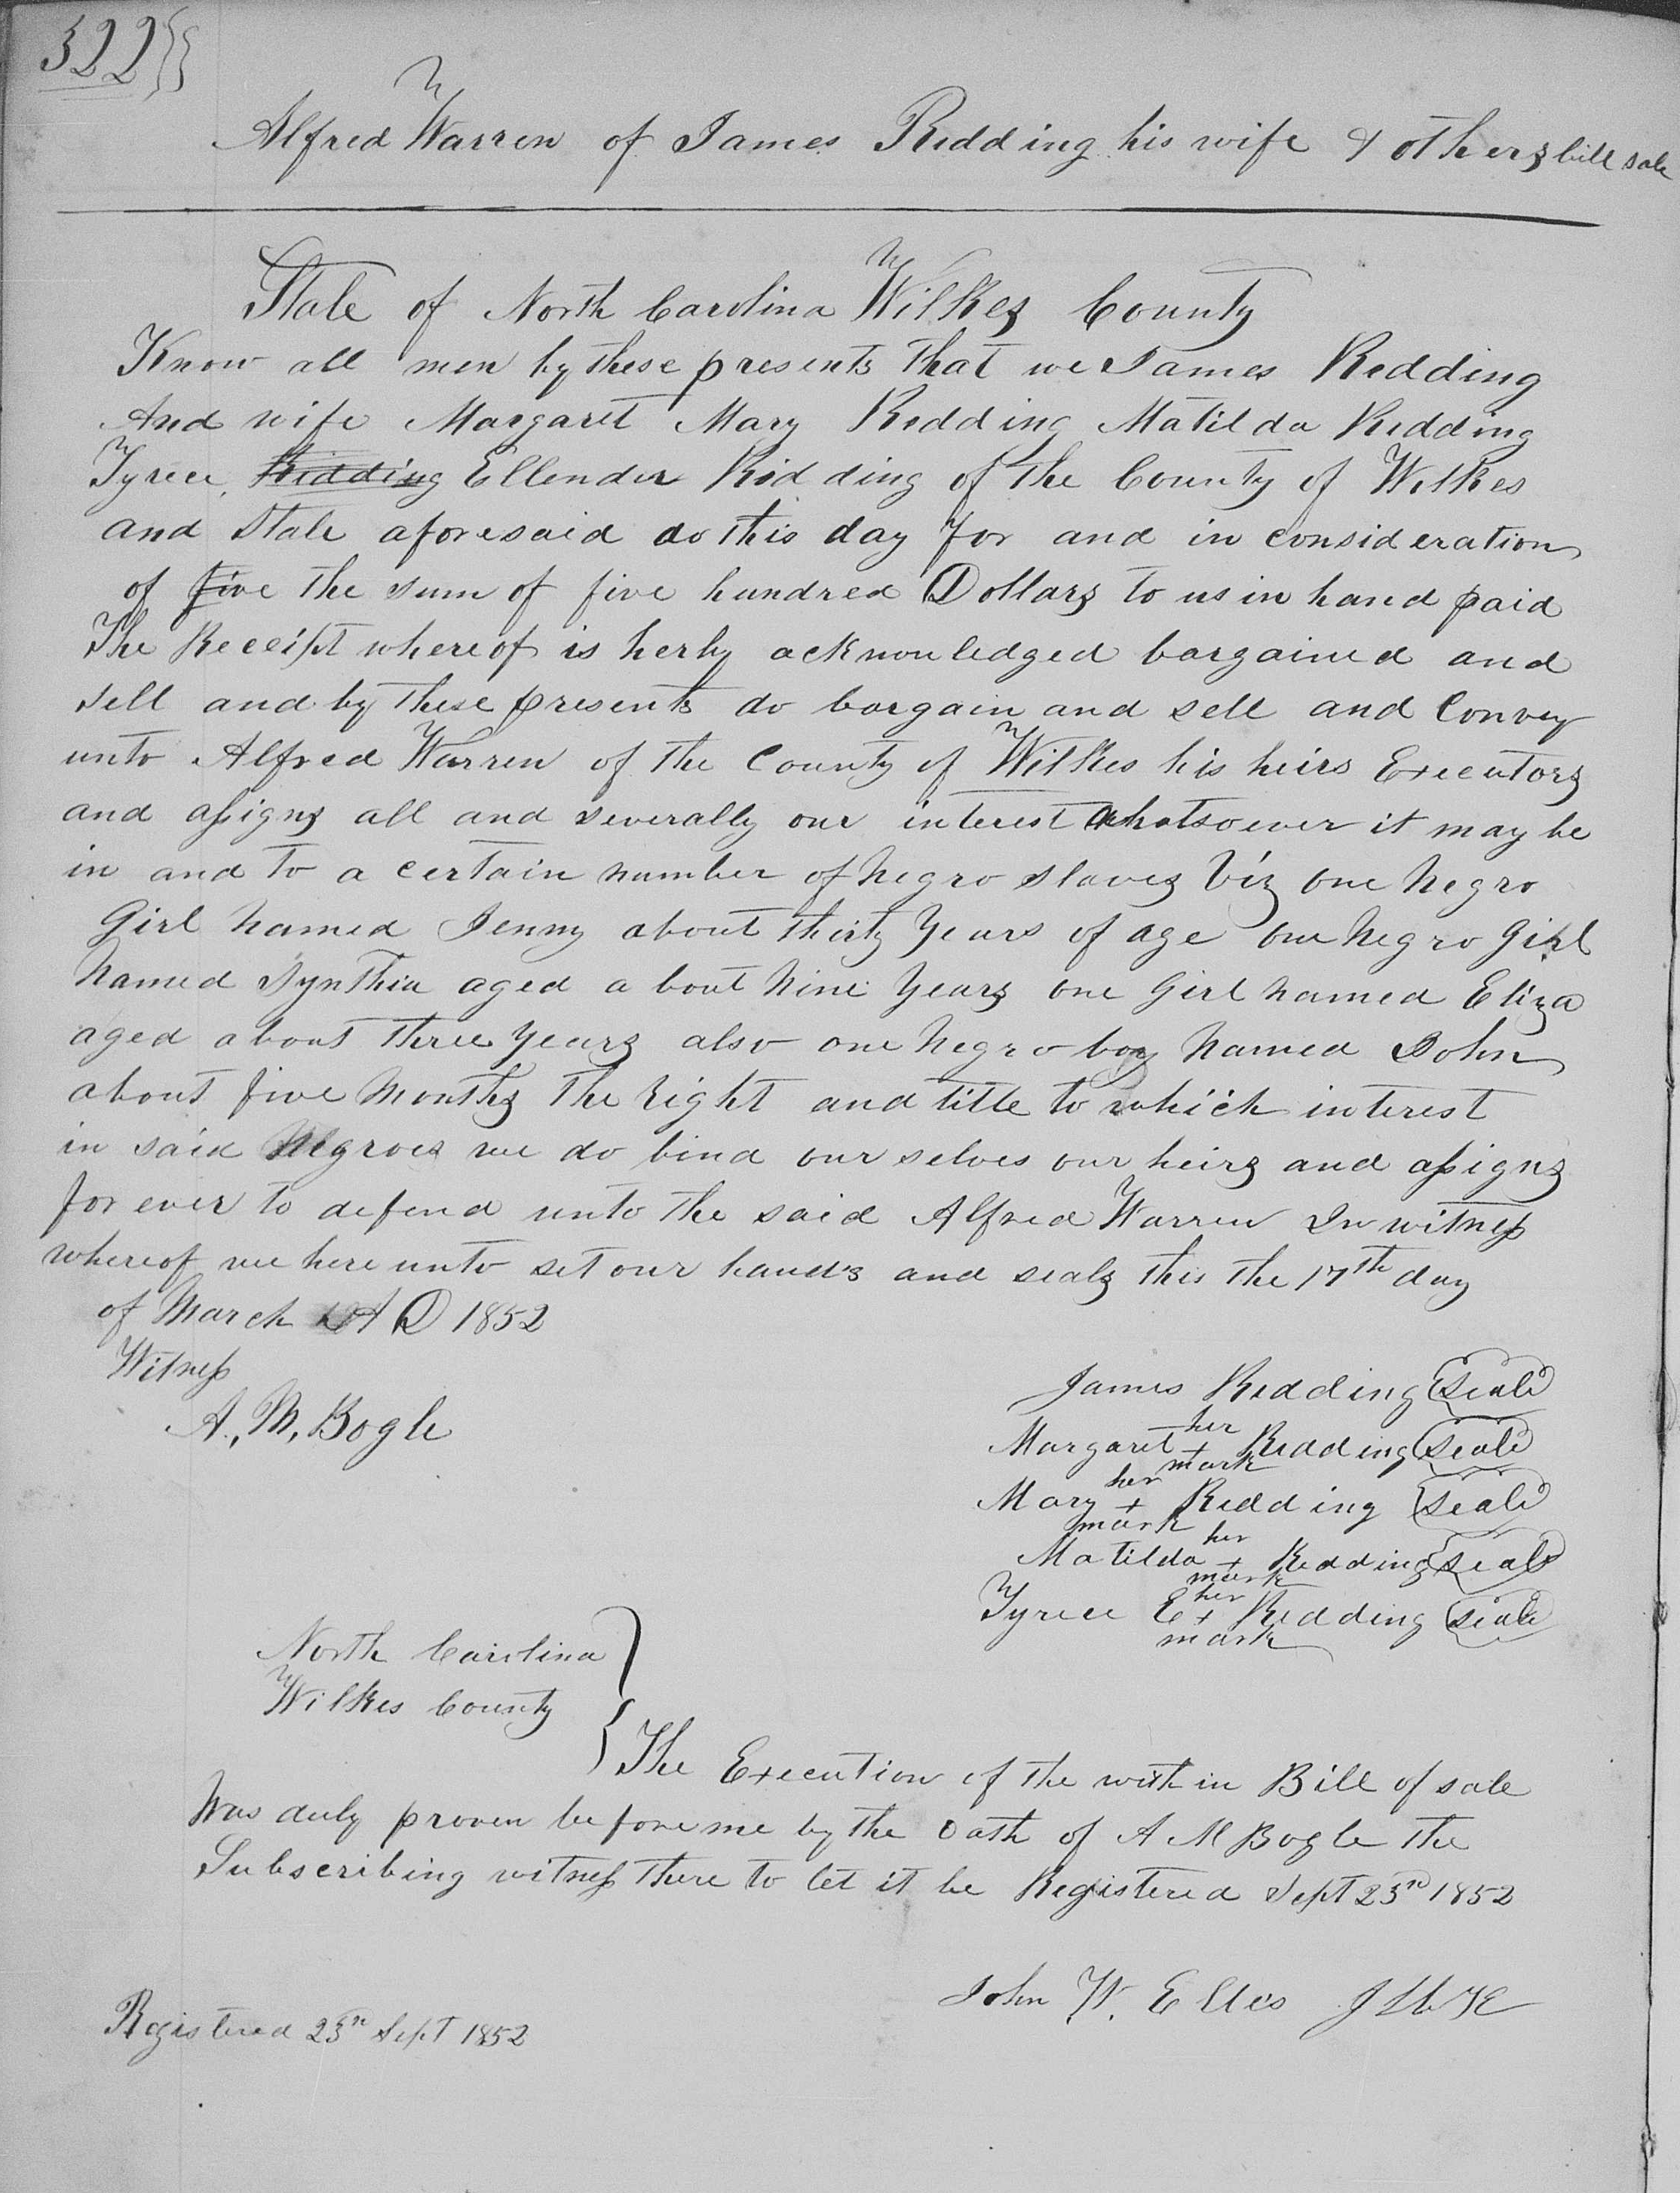 322
Alfred Warren of James Redding his wife & others bill sale
State of North Carolina Wilkes County
Know all men by these presents that we James Redding
And wife Margaret Mary Redding Matilda Redding
Tyree Redding Ellender Redding of the County of Wilkes
and State aforesaid do this day for and in consideration
of five the sum of five hundred Dollars to us in hand paid
The Receipt whereof is herby acknowledged bargained and
sell and by these presents do bargain and sell and Convey
unto Alfred Warren of the County of Wilkes his heirs Executors
and assigns all and severally our interest whatsoever it may be
in and to a certain number of Negro slaves Viz one Negro
Girl Named Jenny about thirty Years of age one Negro Girl
Named Synthia aged about Nine Years one Girl named Eliza
aged about three Years also one Negro boy Named John
about five Months the right and title to which interest
in said Negroes we do bind our selves our heirs and assigns
for ever to defend unto the said Alfred Warren In witness
whereof we here unto set our hands and seals this the 17th day
of March A D 1852
Witness
A. M. Bogle
James Redding Seal
her
Margaret + Redding Seal
mark
her
Mary + Redding Seal
mark
her
Matilda + Redding Seal
mark
her
Tyree E + Redding Seal
mark
North Carolina
Wilkes County
The Execution of the with in Bill of sale
Was duly proven before me by the Oath of A M Bogle the
Subscribing witness there to let it be Registered Sept 23rd 1852
John W. Ellis
Registered 23rd Sept 1852